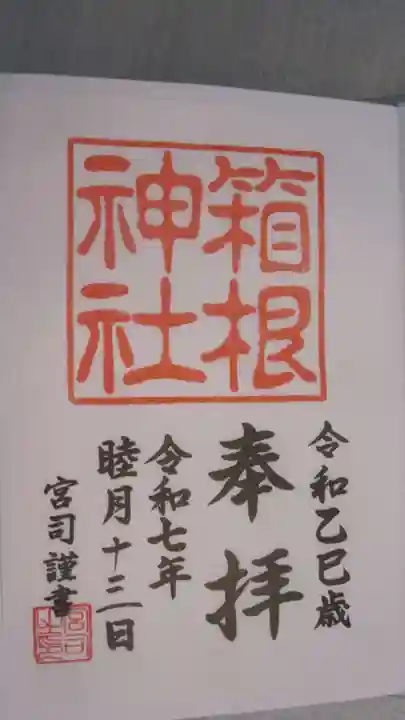 箱根
神社
令和乙巳歳
奉拝
令和七年
睦月十三日
宮司謹書